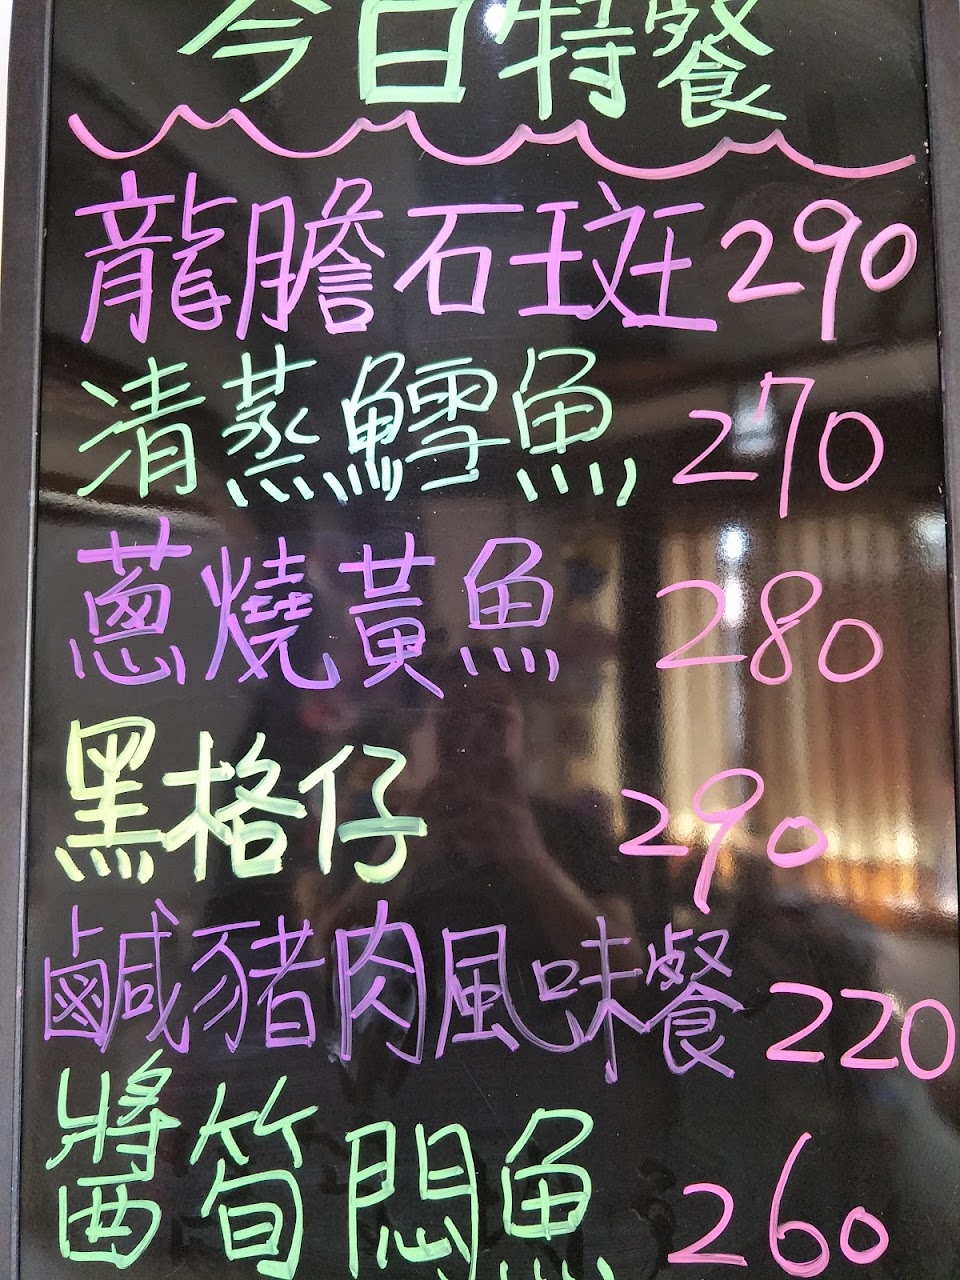 今日特餐
龍膽石斑290
清蒸鱈魚 270
蔥燒黃魚 280
黑格仔 290
鹹豬肉風味餐 220
醬筍悶魚 260